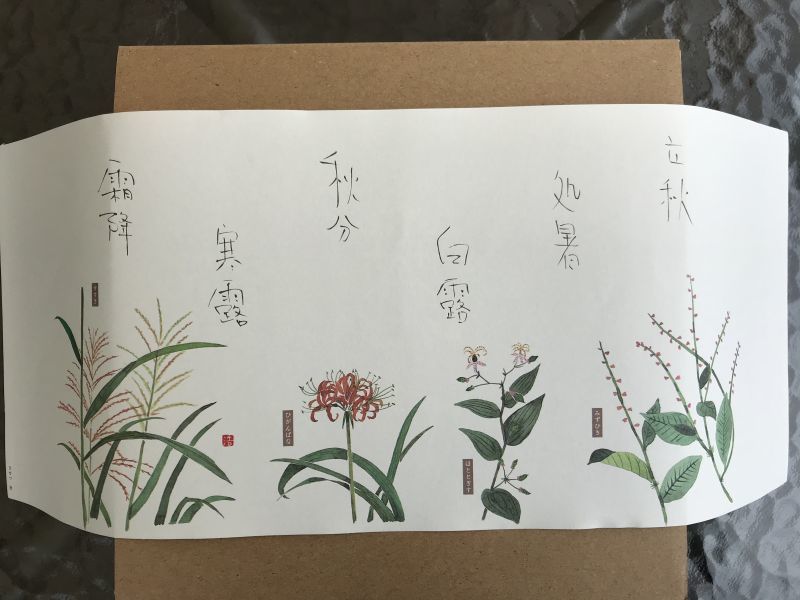 立秋
処暑
白露
秋分
寒露
霜降
みずひき
ほととぎす
ひがんばな